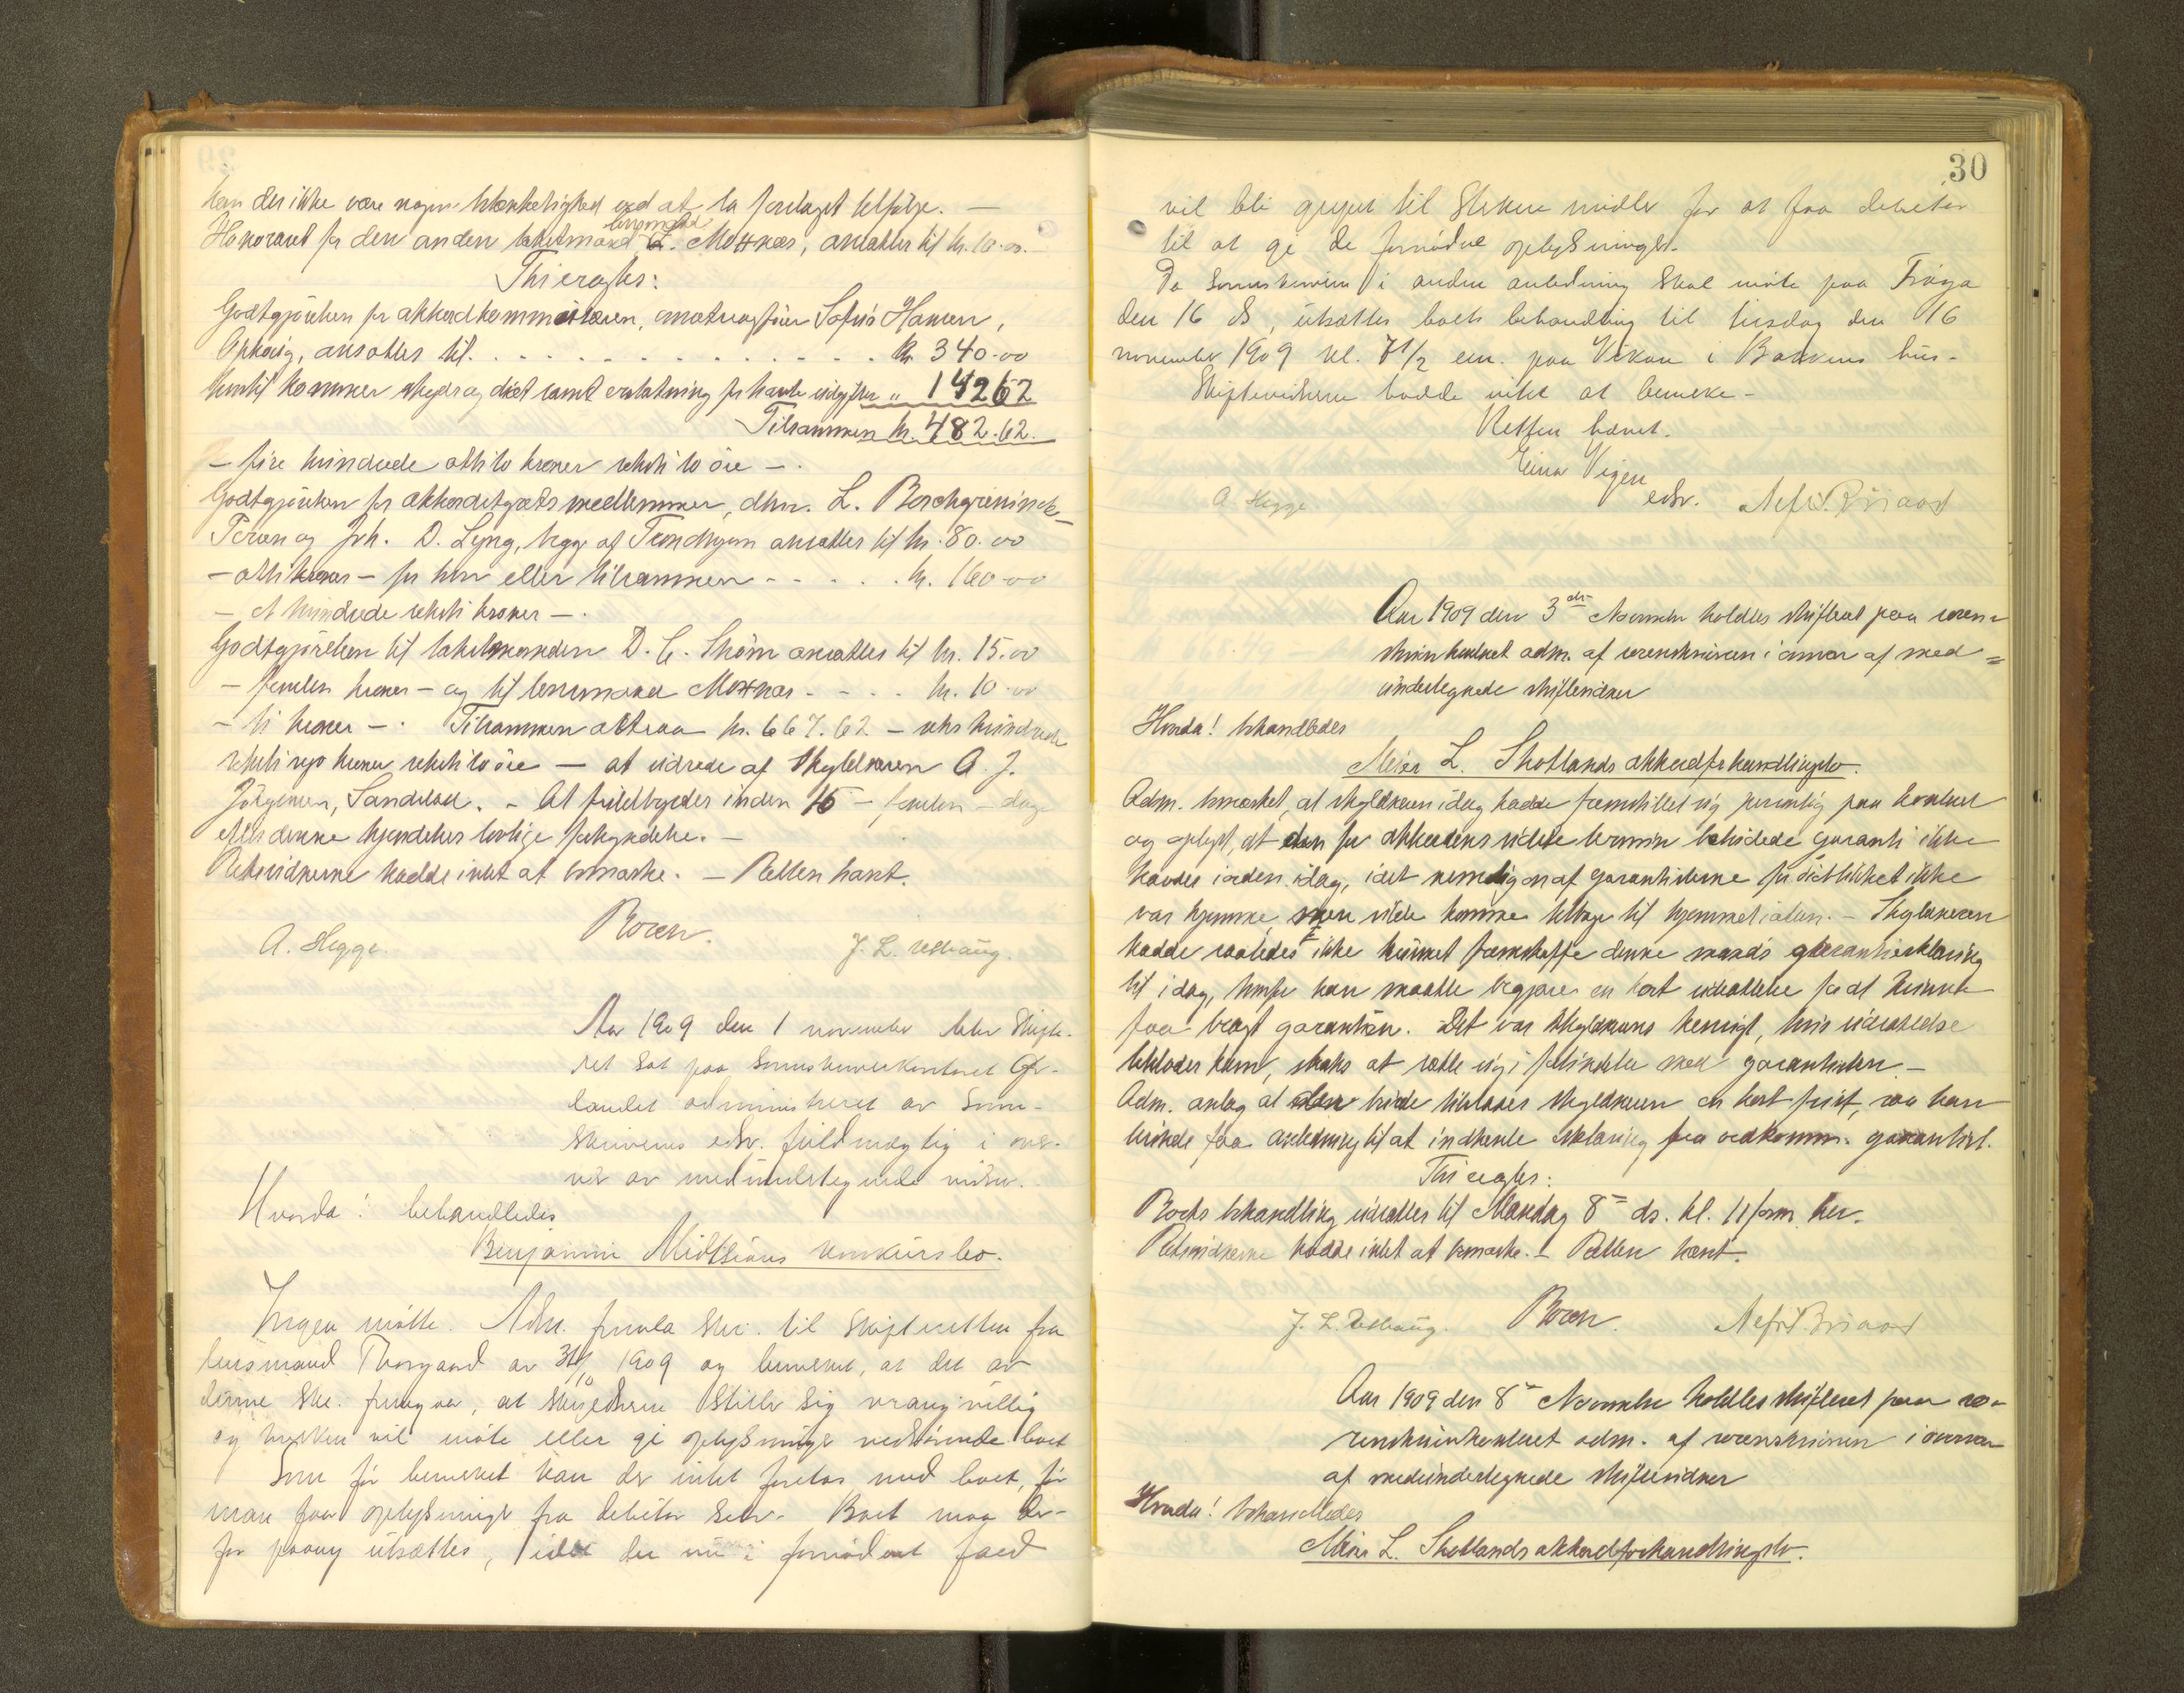 kan der ikke være nogen betænkelighed ved at ta forslaget tilfølge. —
Honoraret for den anden takstmand, lensmand L. Moxnes, ansættes til kr. 10.00.
Thi eragtes:
Godtgjörelsen for akkordkommissæren, overretssakfører Sofus Hansen,
ansættes til . . . . . kr. 340.00
hertil kommer skyds og diæt samt erstatning for havte utgifter " 142 62
Tilsammen kr. 482.62.
— fire hundrede otti to kroner seksti to øre —.
Godtgjörelsen for akkordstyrets medlemmer, dhrr. L. Borchgrevinck-
og Joh. D. Lyng, begge af Trondhjem ansættes til kr. 80.00
— otti kroner — for hver eller tilsammen - - . . . kr. 160.00
— et hundrede seksti kroner —.
Godtgjörelsen til takstmanden D. C. Strøm ansættes til kr. 15.00
— femten kroner — og til lensmand Moxnes - - . . kr. 10.00
— ti kroner —. Tilsammen altsaa kr. 667.62 — seks hundrede
seksti syv kroner seksti to øre — at utrede af skyldneren A. J.
Jörgensen, Sandstad. — At fuldbyrdes inden 15 — femten — dage
efter denne kjendelses lovlige forkyndelse. —
Retsvidnerne hadde intet at bemærke. — Retten hævet.
A. Hegge. J. L. Uthaug.
Aar 1909 den 1 november blev skifte-
ret sat paa Sorenskriverkontoret Ør-
landet administreret av Soren-
skriverens edsv. fuldmægtig i over-
vær av medundertegnede vidner.
Hvorda! behandledes
Benjamin Midtsians konkursbo.
Ingen mötte. Adm. fremla skr. til skifteretten fra
lensmand Thorgaard av 31/10 1909 og bemerket, at det av
denne skr. fremgaar, at skyldneren stiller sig vrangvillig
og hverken vil möte eller gi oplysninger vedrörende boet
Som för bemerket kan der intet foretas med boet, för
man faar oplysninger fra debitor selv. Boet maa der-
for paany utsættes, idet der nu i fornødent fald
30
vil bli grepet til sterkere midler for at faa debitor
til at gi de fornödne oplysninger.
Da Sorenskriveren i anden anledning skal möte paa Fröya
den 16 ds, utsættes boets behandling til tirsdag den 16
november 1909 kl. 7 1/2 em. paa Vikan i Bakkens hus.
Skiftevidnerne hadde intet at bemerke.
Retten hævet.
Einar Vigen
edsv.
A. Hegge
Aar 1909 den 3die November holdtes skifteret paa soren-
skriverkontoret adm. af sorenskriveren i overvær af med-
undertegnede skiftevidner
Hvorda! behandledes
Meier L. Skotlands akkordforhandlingsbo.
Adm. bemærket, at skyldneren idag hadde fremstillet sig personlig paa kontoret
og oplyst, at den for akkordens sidste termin betingede garanti ikke
havdes i orden idag, idet nemlig en af garantisterne for öieblikket ikke
var hjemme, men vilde komme tilbage til hjemmet i aften. — Skyldneren
hadde saaledes ikke kunnet fremskaffe denne mands garantierklæring
til idag, hvorfor han maatte begjære en kort utsættelse for at kunne
faa bragt garantien. Det var skyldnerens hensigt, hvis utsættelse
tilstodes ham, straks at sætte sig i forbindelse med garantisten —
Adm. antog at der burde tilstaaes skyldneren en kort frist, saa han
kunde faa anledning til at indhente erklæring fra vedkomm. garantist.
Thi eragtes:
Boets behandling utsættes til Mandag 8de ds. kl. 11 form. her.
Retsvidnerne hadde intet at bemærke. — Retten hævet.
J. L. Uthaug.
Aar 1909 den 8de November holdtes skifteret paa so-
renskriverkontoret adm. af sorenskriveren i overvær
af medundertegnede skiftevidner
Hvorda! behandledes
Meier L. Skotlands akkordforhandlingsbo.